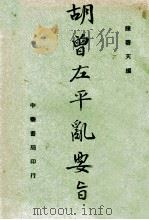 陳啓天編
胡曾左平亂要旨
中華書局印行